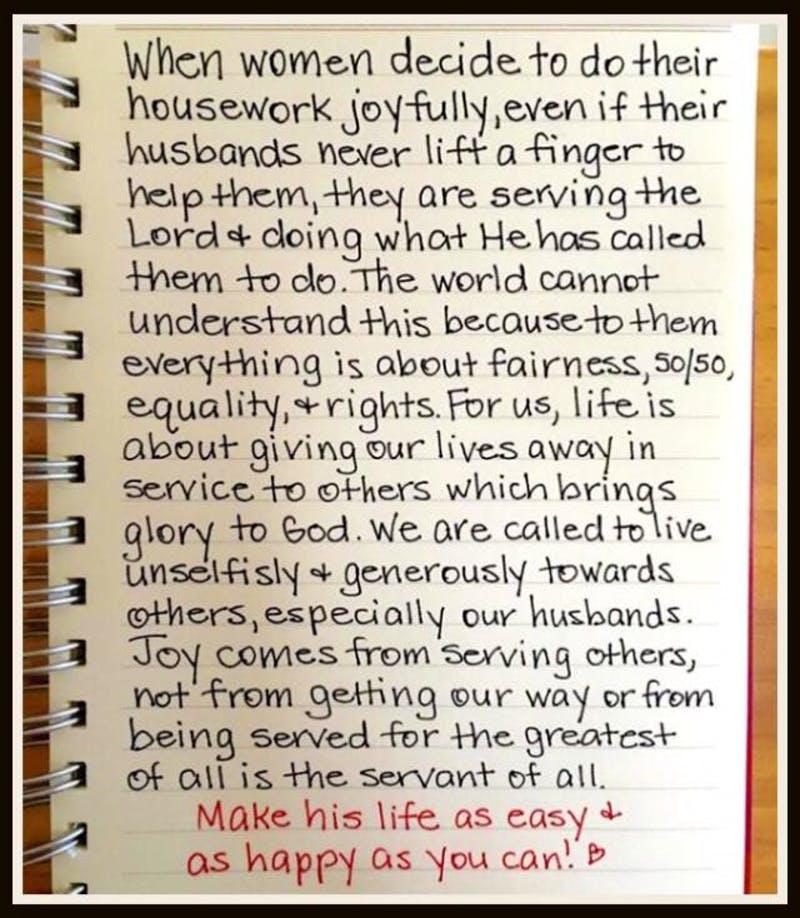 When women decide to do their
housework joyfully, even if their
husbands never lift a finger to
help them, they are serving the
Lord & doing what He has called
them to do. The world cannot
understand this because to them
everything is about fairness, 50/50,
equality, & rights. For us, life is
about giving our lives away in
service to others which brings
glory to God. We are called to live
unselfisly & generously towards
others, especially our husbands.
Joy comes from serving others,
not from getting our way or from
being served for the greatest
of all is the servant of all.
Make his life as easy &
as happy as you can! ♡